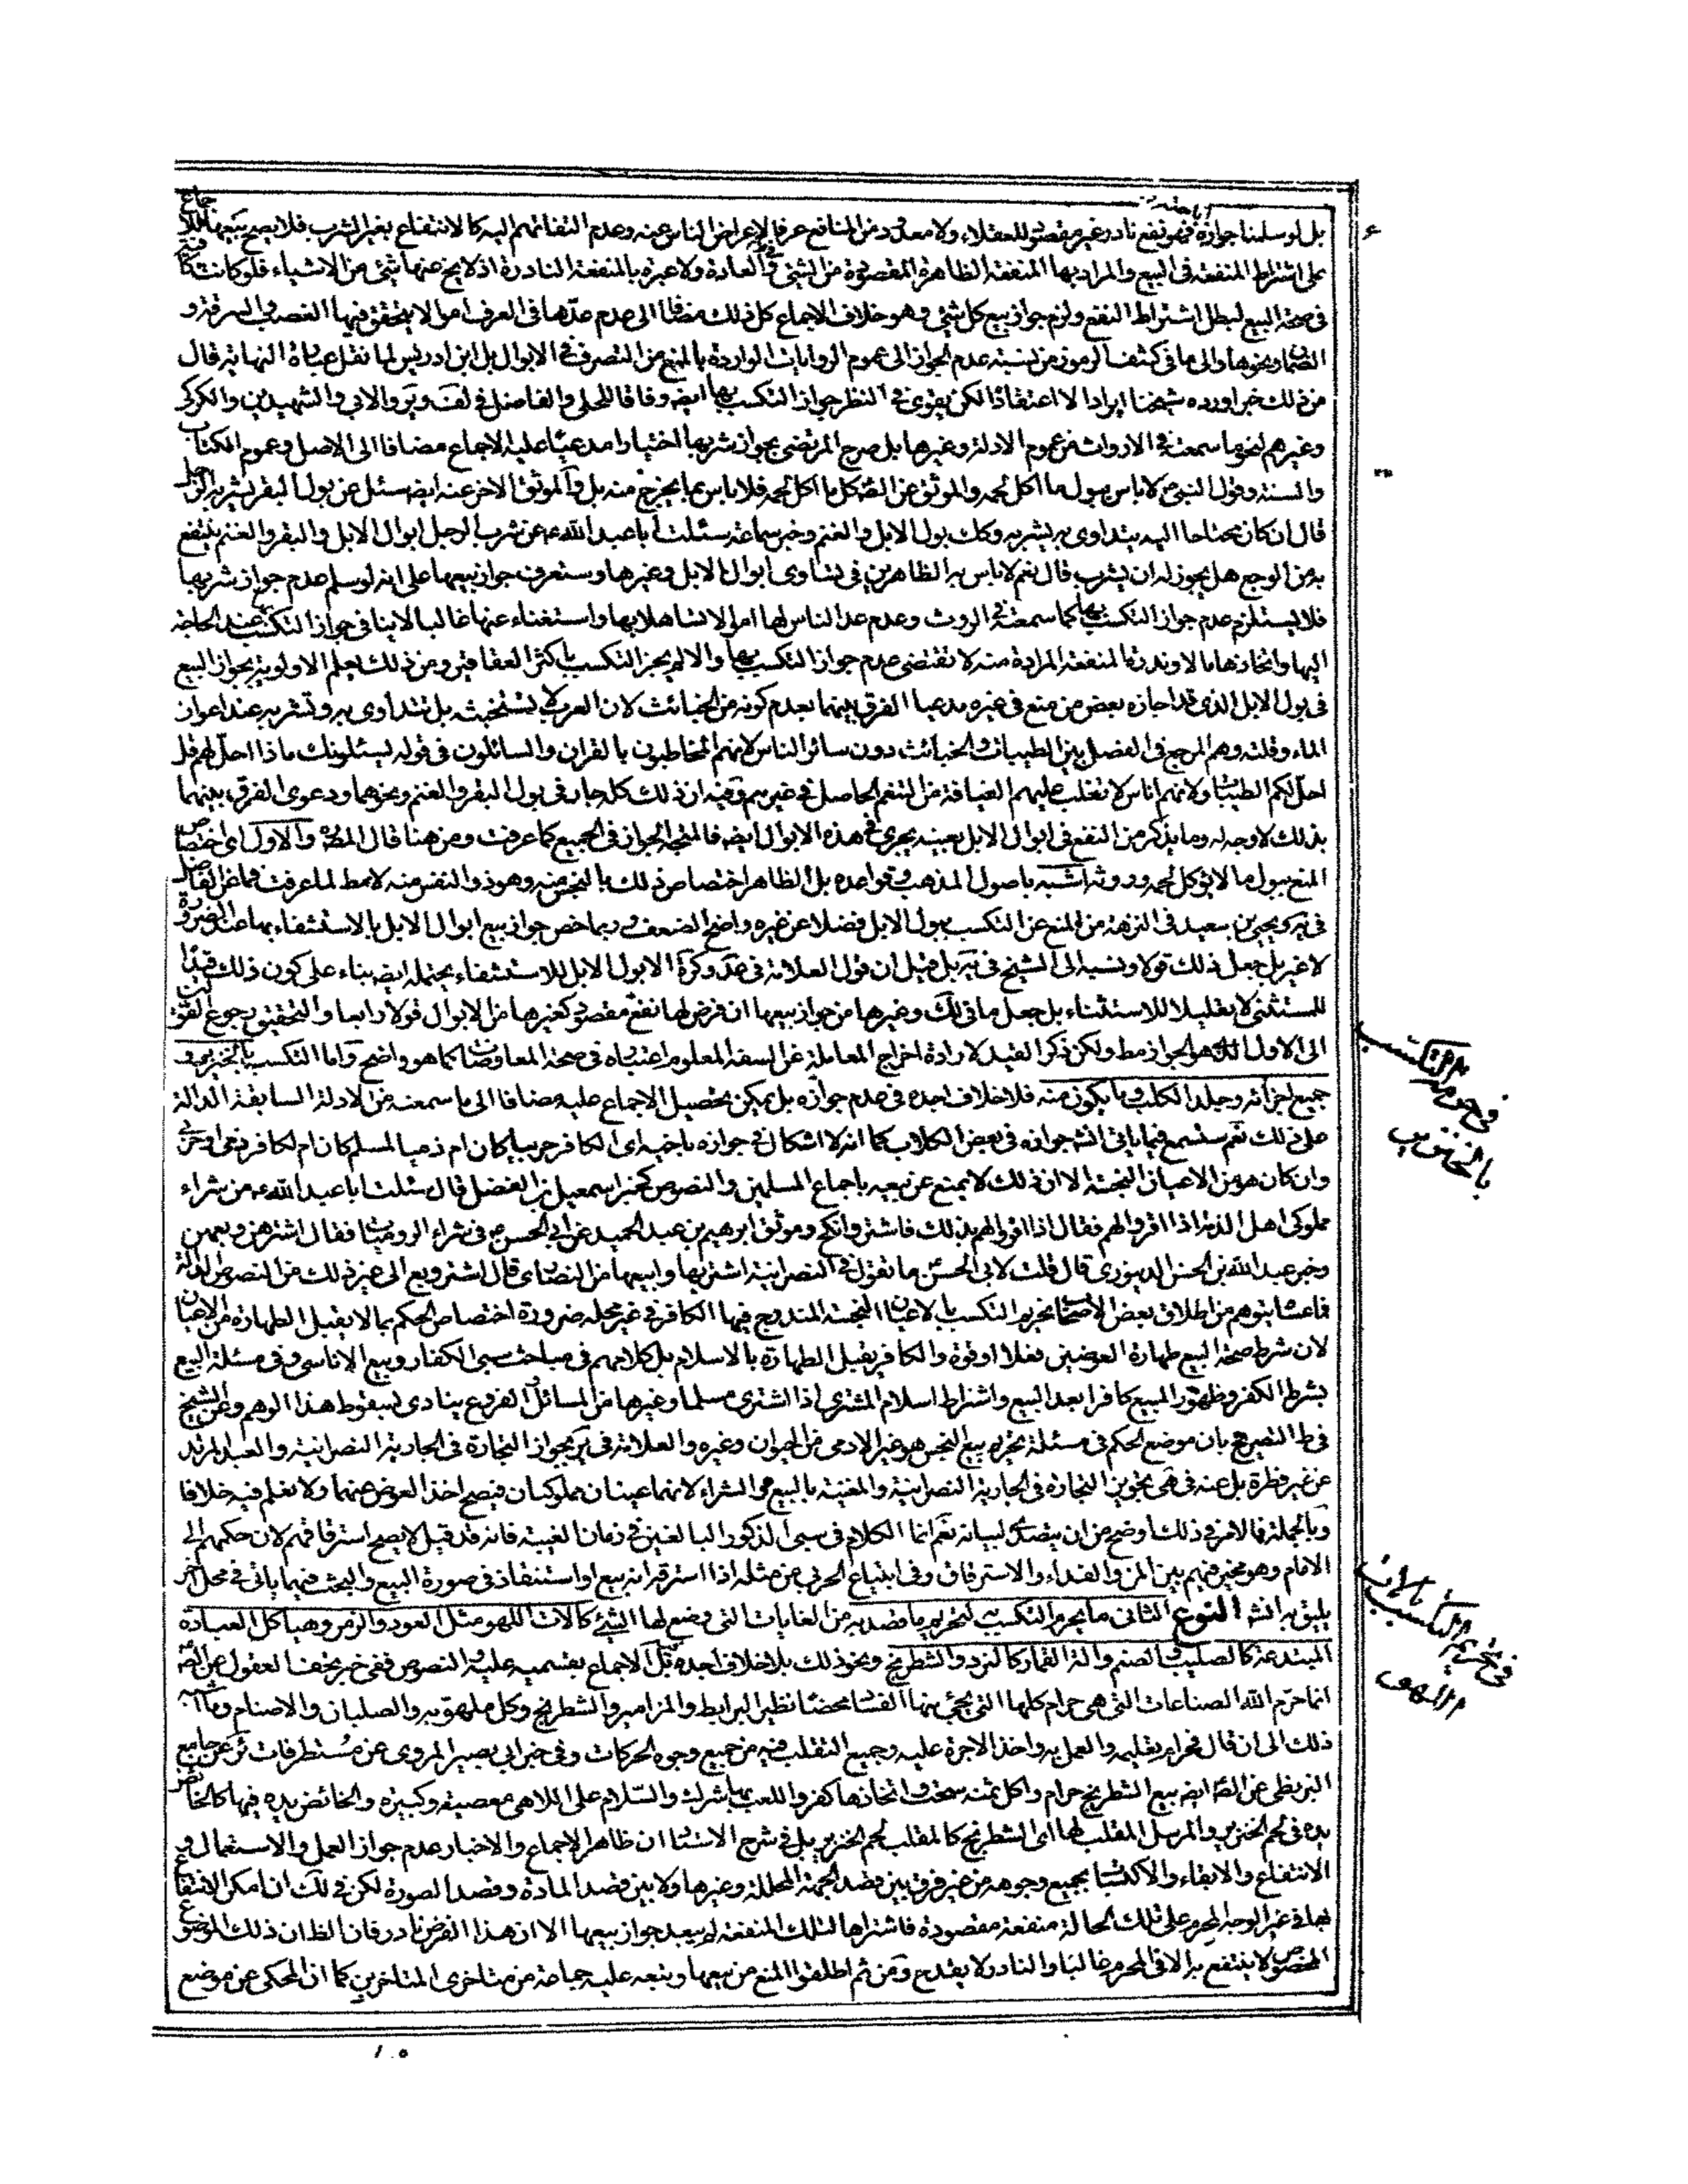 بل لو سلمنا جوازه فهو نفع نادر غير مقصود للعقلاء ولا معدود من المنافع عرفا لإعراض الناس عنه وعدم التفاتهم اليه كالانتفاع بغير الشرب فلا يصح بيعها
على اشتراط المنفعة فى البيع والمراد بها المنفعة الظاهرة المقصودة من الشئ فى العادة ولا عبرة بالمنفعة النادرة اذ لا يخ عنها شئ من الاشياء فلو كانت كافية
فى صحة البيع لبطل اشتراط النفع ولزم جواز بيع كل شئ وهو خلاف الاجماع كل ذلك مضافا الى عدم عدّها فى العرف اموالا يتحقق فيها الغصب والسرقة و
الضمان ونحوها والى ما فى كشف الرموز من نسبة عدم الجواز الى عموم الروايات الواردة بالمنع من التصرف فى الابوال بل ابن ادريس لما نقل عبارة النهاية قال
من ذلك خبر اورده شيخنا ايرادا لا اعتقادا لكن يقوى فى النظر جواز التكسب بها ايضه وفاقا للحلى والفاضل فى لف وير والابى والشهيدين والكركى
وغيرهم لنحو ما سمعته فى الارواث من عموم الادلة وغيرها بل صرح المرتضى بجواز شربها اختيارا مدعيا عليه الاجماع مضافا الى الاصل وعموم الكتاب
والسنة وقول النبى ص لا باس ببول ما اكل لحمه والموثق عن الصّ كل ما اكل لحمه فلا باس بما يخرج منه بل والموثق الاخر عنه ايضه سئل عن بول البقر يشربه الرجل
قال ان كان محتاجا اليه يتداوى به يشربه وكك بول الابل والغنم وخبر سماعة سئلت ابا عبد الله ع عن شرب الرجل ابوال الابل والبقر والغنم ينتفع
به من الوجع هل يجوز له ان يشرب قال نعم لا باس به الظاهرين فى تساوى ابوال الابل وغيرها وستعرف جواز بيعها على انه لو سلم عدم جواز شربها
فلا يستلزم عدم جواز التكسب بها كما سمعته فى الروث وعدم عد الناس لها اموالا لتساهلا بها واستغناء عنها غالبا لا ينافى جواز التكسب عند الحاجة
اليها واتخاذها مالا وندرة المنفعة المرادة منه لا تقتضى عدم جواز التكسب بها والا لم يجز التكسب باكثر العقاقير ومن ذلك يعلم الاولوية بجواز البيع
فى بول الابل الذى قد اجازه بعض من منع فى غيره مدعيا الفرق بينهما بعدم كونه من الخبائث لان العرب لا تستخبثه بل تتداوى به وتشربه عند اعواز
الماء وقلته وهم المرجع فى الفصل بين الطيبات والخبائث دون سائر الناس لانهم المخاطبون بالقران والسائلون فى قوله يسئلونك ماذا احل لهم قل
احل لكم الطيبات ولانهم اناس لا تغلب عليهم العيافة من التنعم الحاصل فى غيرهم وفيه ان ذلك كله جار فى بول البقر والغنم ونحوهما ودعوى الفرق بينهما
بذلك لا وجه له وما يذكر من النفع فى ابوال الابل بعينه يجرى فى هذه الابوال ايضه فالمتجه الجواز فى الجميع كما عرفت ومن هنا قال المصّ والاول اى اختصاص
المنع ببول ما لا يؤكل لحمه وروثه اشبه باصول المذهب وقواعده بل الظاهر اختصاص ذلك بالنجس منه وهو ذو النفس منه لا مط لما عرفت فما عن الفاضل
فى ية ويحيى بن سعيد فى النزهة من المنع عن التكسب ببول الابل فضلا عن غيره واضح الضعف وربما خص جواز بيع ابوال الابل بالاستشفاء بها عند الضرورة
لا غير بل جعل ذلك قولا ونسبه الى الشيخ فى ية بل قيل ان قول العلامة فى عد وكرة الا بول الابل للاستشفاء يحتمله ايضه بناء على كون ذلك قيدا
للمستثنى لا تعليلا للاستثناء بل جعل ما فى لك وغيرها من جواز بيعها ان فرض لها نفع مقصود كغيرها من الابوال قولا رابعا والتحقيق رجوع القول
الى الاول وهو الجواز مط ولكن ذكر القيد لارادة اخراج المعاملة عن السفه المعلوم اعتباره فى صحة المعاوضات كما هو واضح واما التكسب بالخنزير و
جميع اجزائه وجلد الكلب وما يكون منه فلا خلاف اجده فى عدم جوازه بل يمكن تحصيل الاجماع عليه مضافا الى ما سمعته من الادلة السابقة الدالة
على ذلك نعم ستسمع فيما ياتى انش جوازه فى بعض الكلاب كما انه لا اشكال فى جوازه باخيه اى الكافر حربيا كان ام ذميا لمسلم كان ام لكافر ذمى او حربى
وان كان هو من الاعيان النجسة الا ان ذلك لا يمنع عن بيعه باجماع المسلمين والنصوص كخبر اسمعيل بن الفضل قال سئلت ابا عبد الله ع من شراء
مملوكى اهل الذمة اذا اقروا لهم فقال اذا اقروا لهم بذلك فاشتر وانكح وموثق ابرهيم بن عبد الحميد عن ابى الحسن ع فى شراء الروميات فقال اشترهن وبعهن
وخبر عبد الله بن الحسن الدينورى قال قلت لابى الحسن ما تقول فى النصرانية اشتريها وابيعها من النصارى قال اشتر وبع الى غير ذلك من النصوص الدالة
فما عساه يتوهم من اطلاق بعض الاصحاب تحريم التكسب بالاعيان النجسة المندرج فيها الكافر فى غير محله ضرورة اختصاص الحكم بما لا يقبل الطهارة من الاعيان
لان شرط صحة البيع طهارة العوضين فعلا او قوة والكافر يقبل الطهارة بالاسلام بل كلامهم فى مباحث سبى الكفار وبيع الاناسى وفى مسئلة البيع
بشرط الكفر وظهور المبيع كافرا بعد البيع واشتراط اسلام المشترى اذا اشترى مسلما وغيرها من المسائل والفروع ينادى بسقوط هذا الوهم وعن الشيخ
فى ط التصريح بان موضع الحكم فى مسئلة تحريم بيع النجس هو غير الادمى من الحيوان وغيره والعلامة فى ير بجواز التجارة فى الجارية النصرانية والعبد المرتد
عن غير فطرة بل عنه فى هى تجويز التجارة فى الجارية النصرانية والمغنية بالبيع والشراء لانهما عينان مملوكتان فيصح اخذ العوض عنهما ولا نعلم فيه خلافا
وبالجملة فالامر فى ذلك اوضح من ان يتصدى لبيانه نعم انما الكلام فى سبى الذكور البالغين فى زمان الغيبة فانه قد قيل لا يصح استرقاقهم لان حكمهم الى
الامام وهو مخير فيهم بين المن والفداء والاسترقاق وفى ابتياع الحربى من مثله اذا استرقه انه بيع او استنقاذ فى صورة البيع والبحث فيهما ياتى فى محل اخر
يليق به انش النوع الثانى ما يحرم التكسب به لتحريم ما قصد به من الغايات التى وضع لها الشئ كالات اللهو مثل العود والزمر وهياكل العبادة
المبتدعة كالصليب والصنم والة القمار كالنرد والشطرنج ونحو ذلك بلا خلاف اجده فيه بل الاجماع بقسميه عليه والنصوص ففى خبر تحف العقول عن الصّ
انما حرم الله الصناعات التى هى حرام كلها التى يجئ منها الفساد محضا نظير البرابط والمزامير والشطرنج وكل ملهو به والصلبان والاصنام وما اشبه
ذلك الى ان قال فحرام تعليمه والعمل به واخذ الاجرة عليه وجميع التقلب فيه من جميع وجوه الحركات وفى خبر ابى بصير المروى عن مستطرفات ئر عن جامع
البزنطى عن الصّ ايضه بيع الشطرنج حرام واكل ثمنه سحت واتخاذها كفر واللعب بها شرك والسّلام على اللاهى معصية وكبيرة والخائض يده فيها كالخائض
يده فى لحم الخنزير والمرسل المقلب لها اى الشطرنج كالمقلب لحم الخنزير بل فى شرح الاستاد ان ظاهر الاجماع والاخبار عدم جواز العمل والاستعمال و
الانتفاع والابقاء والاكتساب بجميع وجوهه من غير فرق بين قصد الجهة المحللة وغيرها ولا بين قصد المادة وقصد الصورة لكن فى لك ان امكن الانتفاع
بها فى غير الوجه المحرم على تلك الحالة منفعة مقصودة فاشتراها لتلك المنفعة لم يبعد جواز بيعها الا ان هذا الفرض نادر فان الظ ان ذلك الموضوع
المخصوص لا ينتفع به الا فى المحرم غالبا والنادر لا يقدح ومن ثم اطلقوا المنع من بيعها وتبعه عليه جماعة من متاخرى المتاخرين كما ان المحكى عن موضع
فى حرمة التكسب
بالخنزير
فى تحريم التكسب بالات
اللهو